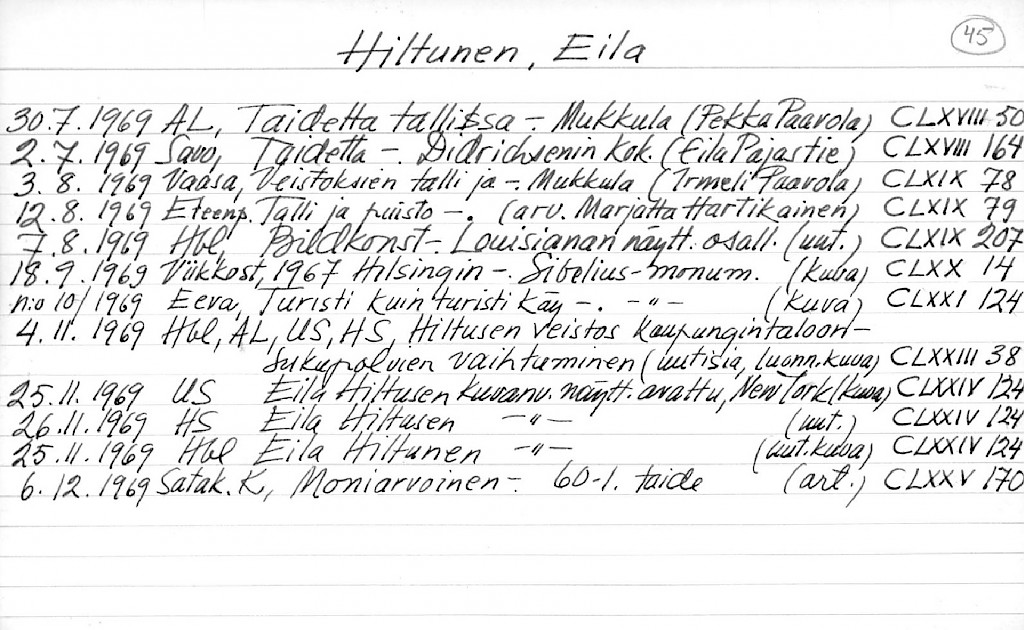 45
Hiltunen, Eila
30.7.1969 AL, Taidetta tallissa -. Mukkula (Pekka Paavola) CLXVIII 50
2.7.1969 Savo, Taidetta -. Didrichsenin Kok. (Eila Pajastie) CLXVIII 164
3.8.1969 Vaasa, Veistoksien talli ja -. Mukkula (Irmeli Paavola) CLXIX 78
12.8.1969 Eteenp. Talli ja puisto -. (arv. Marjatta Hartikainen) CLXIX 79
7.8.1969 Hbl, Bildkonst -. Louisianan näytt. osall. (uut.) CLXIX 207
18.9.1969 Viikkost, 1967 Hilsingin -. Sibelius-monum. (kuva) CLXX 14
n:o 10/1969 Eeva, Turisti kuin turisti käy -. -"- (kuva) CLXXI 124
4.11.1969 Hbl, AL, US, HS, Hiltusen veistos kaupungintaloon -
Sukupolvien vaihtuminen (uutisia, luonn.kuva) CLXXIII 38
25.11.1969 US Eila Hiltusen kuvanv. näytt. avattu, New York (kuva) CLXXIV 124
26.11.1969 HS Eila Hiltusen -"- (uut.) CLXXIV 124
25.11.1969 Hbl Eila Hiltunen -"- (uut.kuva) CLXXIV 124
6.12.1969 Satak. K, Moniarvoinen -. 60-l. taide (art.) CLXXV 170